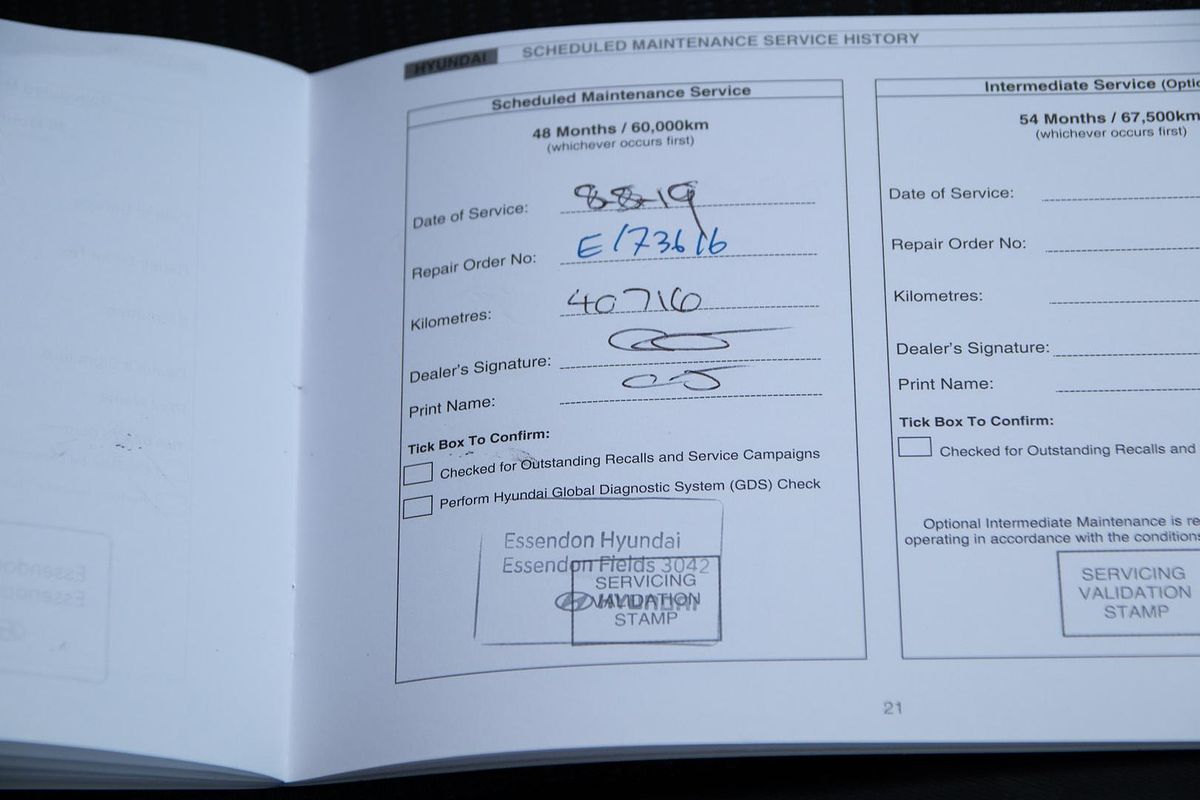 HYUNDAI SCHEDULED MAINTENANCE SERVICE HISTORY
Scheduled Maintenance Service
48 Months / 60,000km
(whichever occurs first)
Date of Service: 8-8-19
Repair Order No: E173616
Kilometres: 40716
Dealer's Signature:
Print Name:
Tick Box To Confirm:
Checked for Outstanding Recalls and Service Campaigns
Perform Hyundai Global Diagnostic System (GDS) Check
Essendon Hyundai
Essendon Fields 3042
HYUNDAI
SERVICING
VALIDATION
STAMP
Intermediate Service (Optio
54 Months / 67,500km
(whichever occurs first)
Date of Service:
Repair Order No:
Kilometres:
Dealer's Signature:
Print Name:
Tick Box To Confirm:
Checked for Outstanding Recalls and
Optional Intermediate Maintenance is re
operating in accordance with the conditions
SERVICING
VALIDATION
STAMP
21